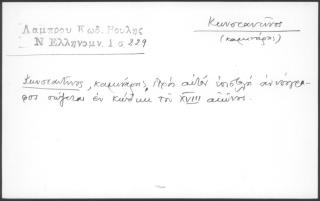 Λαμπρου Κωδ. Βουλης
Ν Ελληνομν. 1 σ 229
Κωνσταντῖνος
(καμινάρης)
Κωνσταντῖνος, καμινάρης, Πρὸς αὐτὸν ἐπιστολὴ ἀνυπόγρα-
φος σώζεται ἐν κώδικι τοῦ XVIII αἰῶνος.